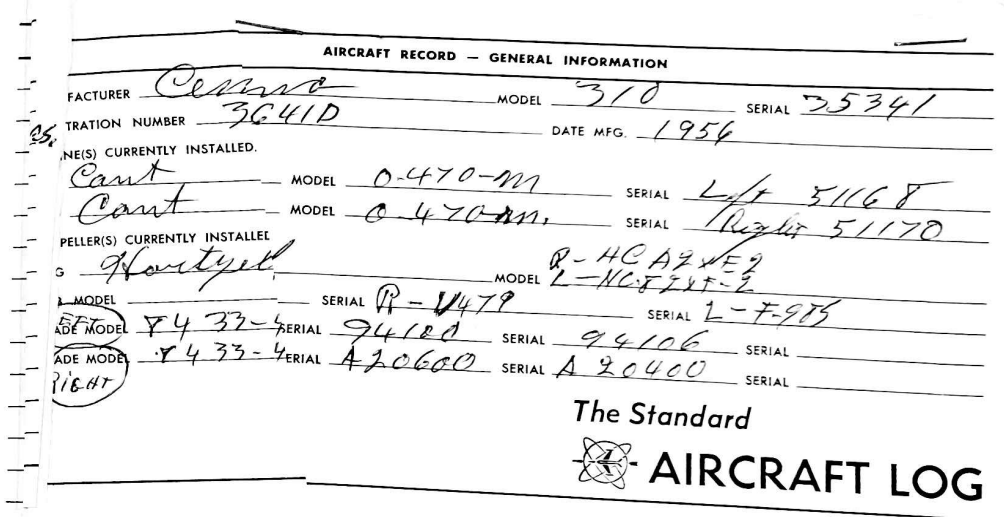 AIRCRAFT RECORD — GENERAL INFORMATION
FACTURER Cessna MODEL 310 SERIAL 35341
TRATION NUMBER 3641D DATE MFG. 1956
NE(S) CURRENTLY INSTALLED.
Cont MODEL O-470-M SERIAL L/ft 51168
Cont MODEL O-470-M. SERIAL Right 51170
PELLER(S) CURRENTLY INSTALLED
G Hartzell MODEL R-HCA2XF-2
L-HC82XF-2
MODEL SERIAL R-V479 SERIAL L-F-985
LEFT ADE MODEL 8433-4 SERIAL 94100 SERIAL 94106 SERIAL
ADE MODEL 8433-4 ERIAL A20600 SERIAL A 20400 SERIAL
RIGHT
The Standard
AIRCRAFT LOG